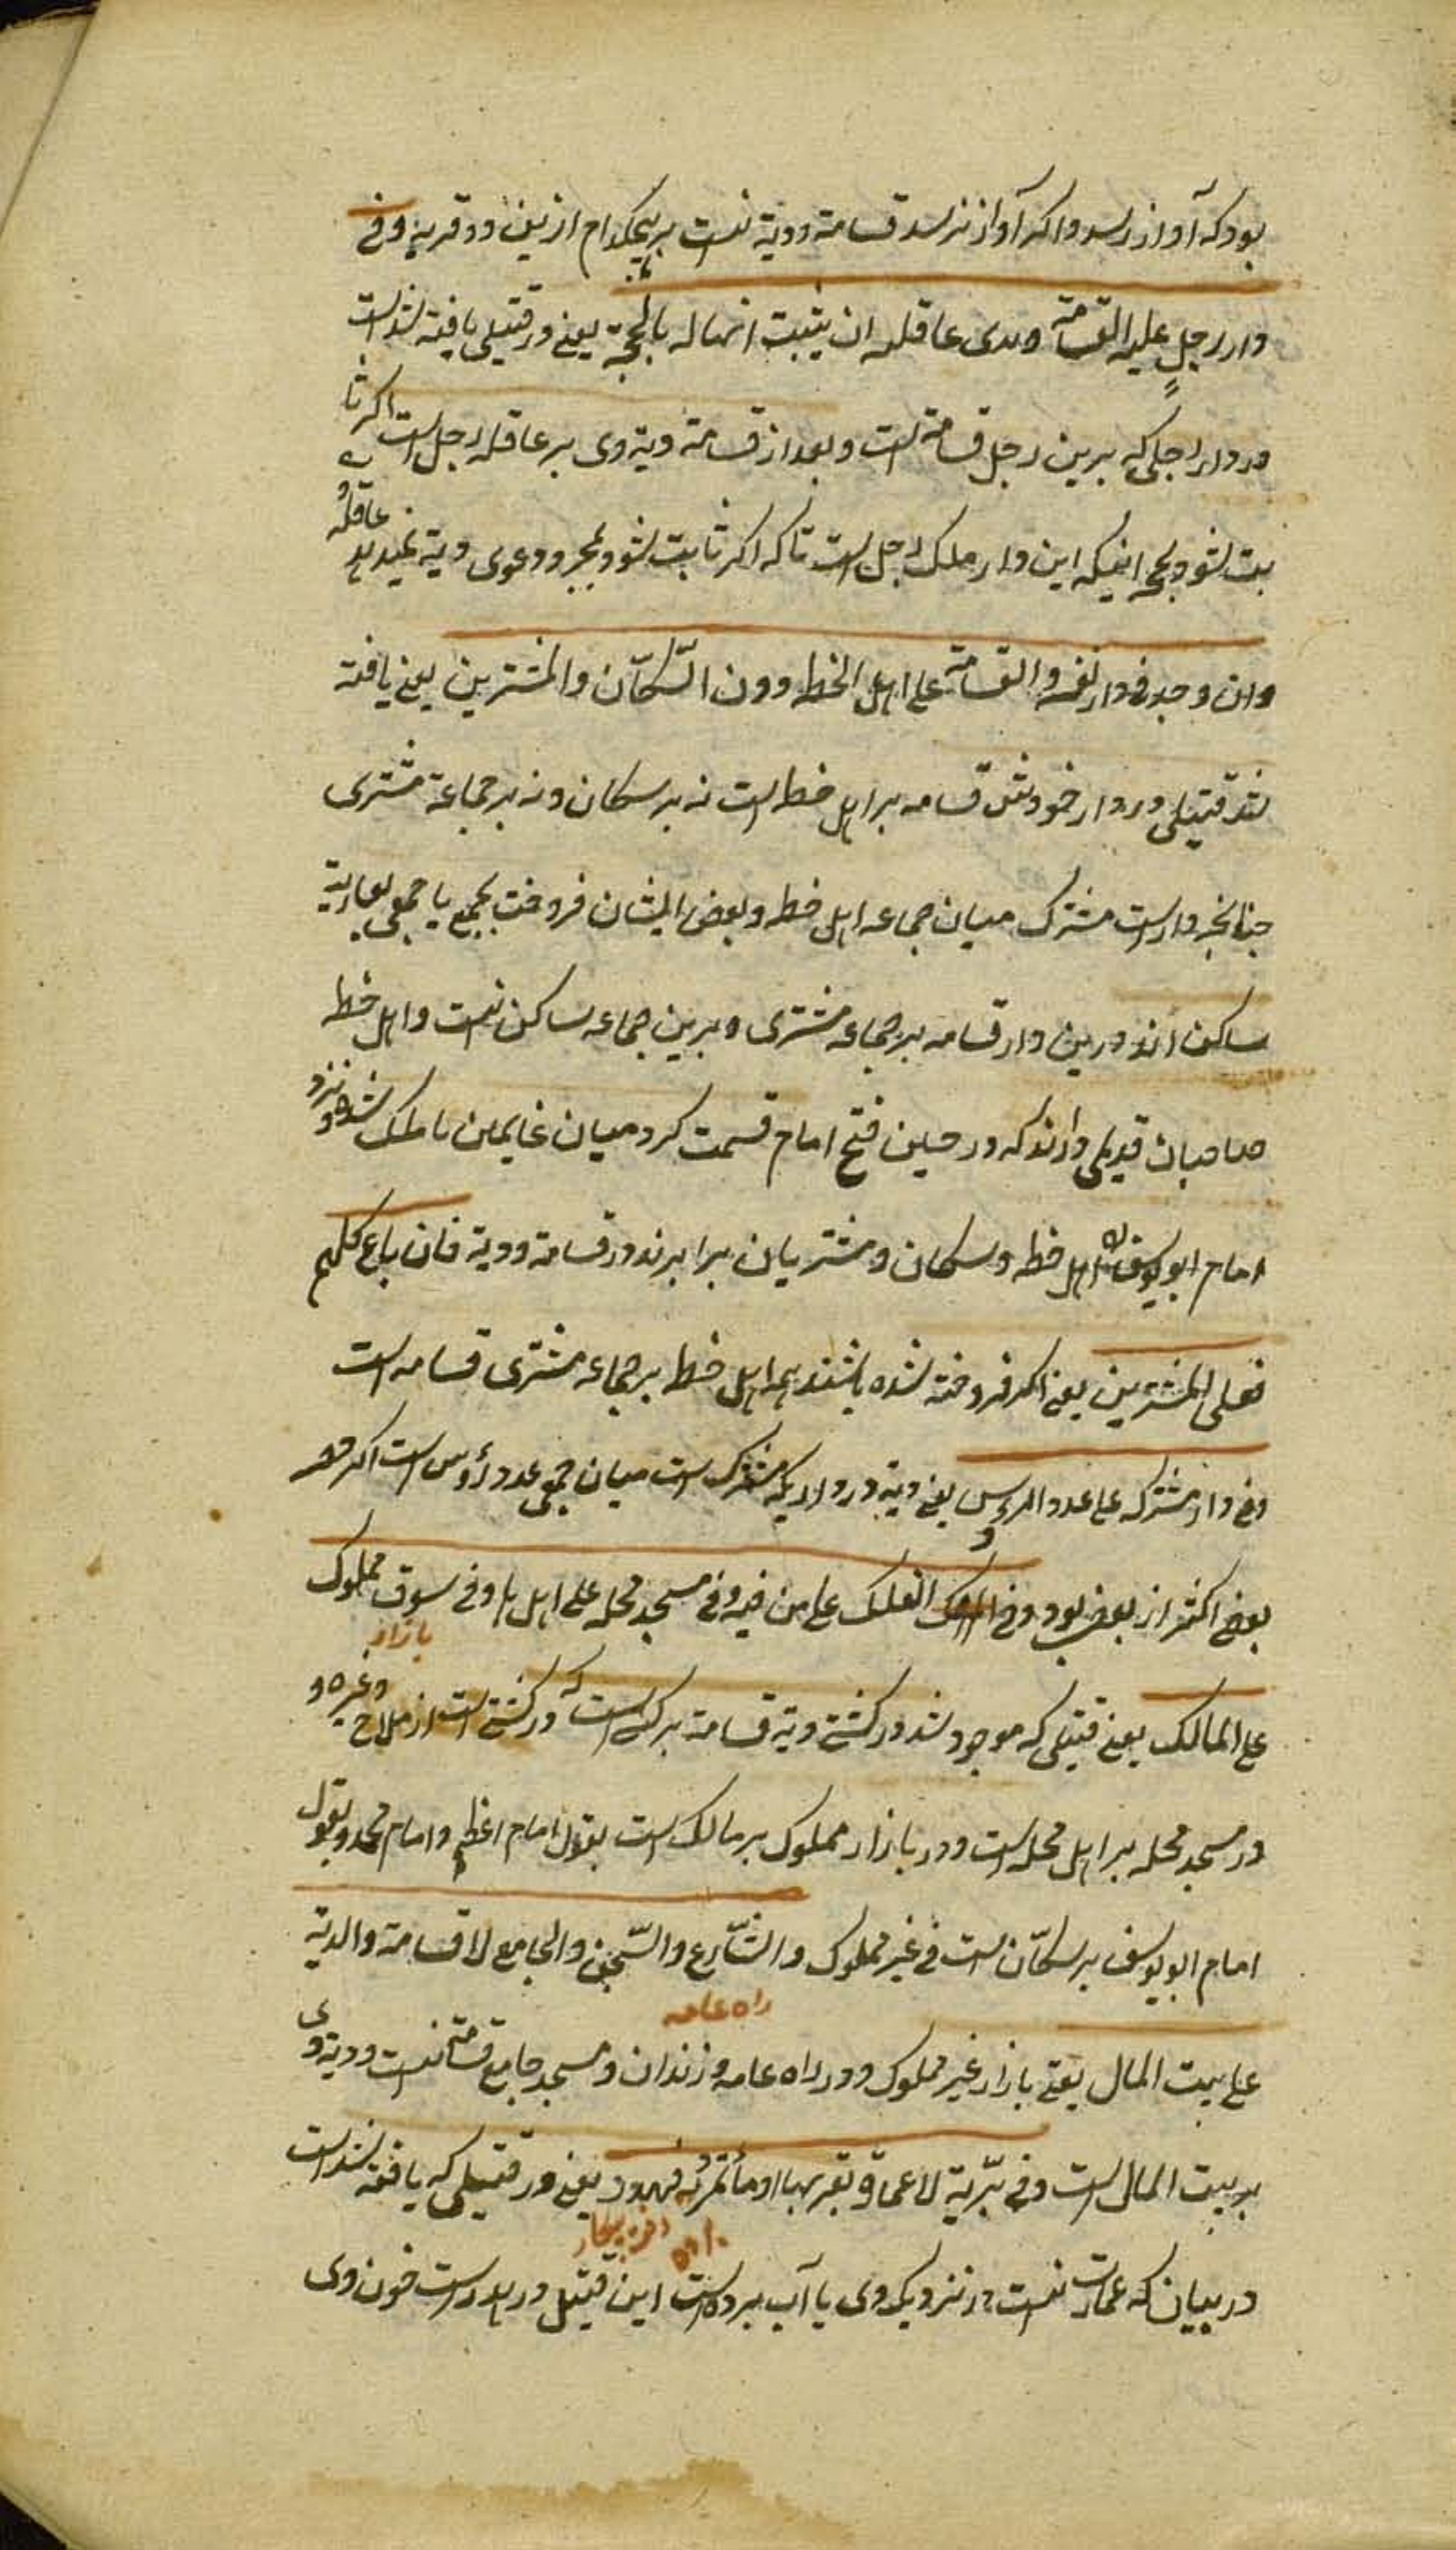 بود که آواز رسد و اکر آواز نرسد قسامة و دیة نیست بر هیچکدام ازین دو قریه وفی
دار رجل علیه القسامة و یدی عاقلته ان یثبت انها له بالحجة یعنی در قتیلی یافته شد است
در دار رجلی که برین رجل قسامة است و بعد از قسامة دیة وی بر عاقله رجل است اکر ثا
بت شود بحجة اینکه این دار ملک رجل است تا که اکر ثابت نشود بمجرد دعوی دیة نمیدهد عاقله
وان وجد فی دار نفسه والقسامة علی اهل الخطه دون السّکّان والمشترین یعنی یافته
شد قتیلی در دار خودش قسامه بر اهل خطه است نه بر سکان و نه بر جماعة مشتری
چنانچه دار است مشترک میان جماعه اهل خطه و بعض ایشان فروخت بجمع یا جمعی بعاریة
ساکن اند درین دار قسامه بر جماعه مشتری و برین جماعه ساکن نیست و اهل خطه
صاحبان قدیمی دارند که در حین فتح امام قسمت کرد میان غانمین تا ملک شده و نزد
امام ابو یوسف اهل خطه و سکان و مشتریان برابرند در قسامة و دیة فان باع کلهم
فعلی المشترین یعنی اکر فروخته شده باشند همه اهل خطه بر جماعه مشتری قسامه است
وفی دار مشترکه علی عدد الروس یعنی دیة در داریکه مشترک است میان جمعی عدد رؤس است اکر چه
بعضی اکثر از بعض بود وفی الفلک علی من فیه وفی مسجد محله علی اهلها وفی سوق مملوک
بازار
علی المالک یعنی قتیلی که موجود شد در کشتی دیة قسامة بر کسی است که در کشتی است از ملاح و غیره و
در مسجد محله بر اهل محله است و در بازار مملوک بر مالک است بقول امام اعظم و امام محمد و بقول
امام ابو یوسف بر سکّان است فی غیر مملوک والشّارع والسّجن والجامع لا قسامة والدیة
راه عامه
علی بیت المال یعنی بازار غیر مملوک و در راه عامه و زندان و مسجد جامع قسامة نیست و دیة وی
بر بیت المال است وفی برّیة لا عمارة بقربها او ماء یمر به فهدر یعنی در قتیلی که یافته شد است
در بیان که عمارت نیست در نزدیک وی یا آب برده است این قتیل در هدر است خون وی